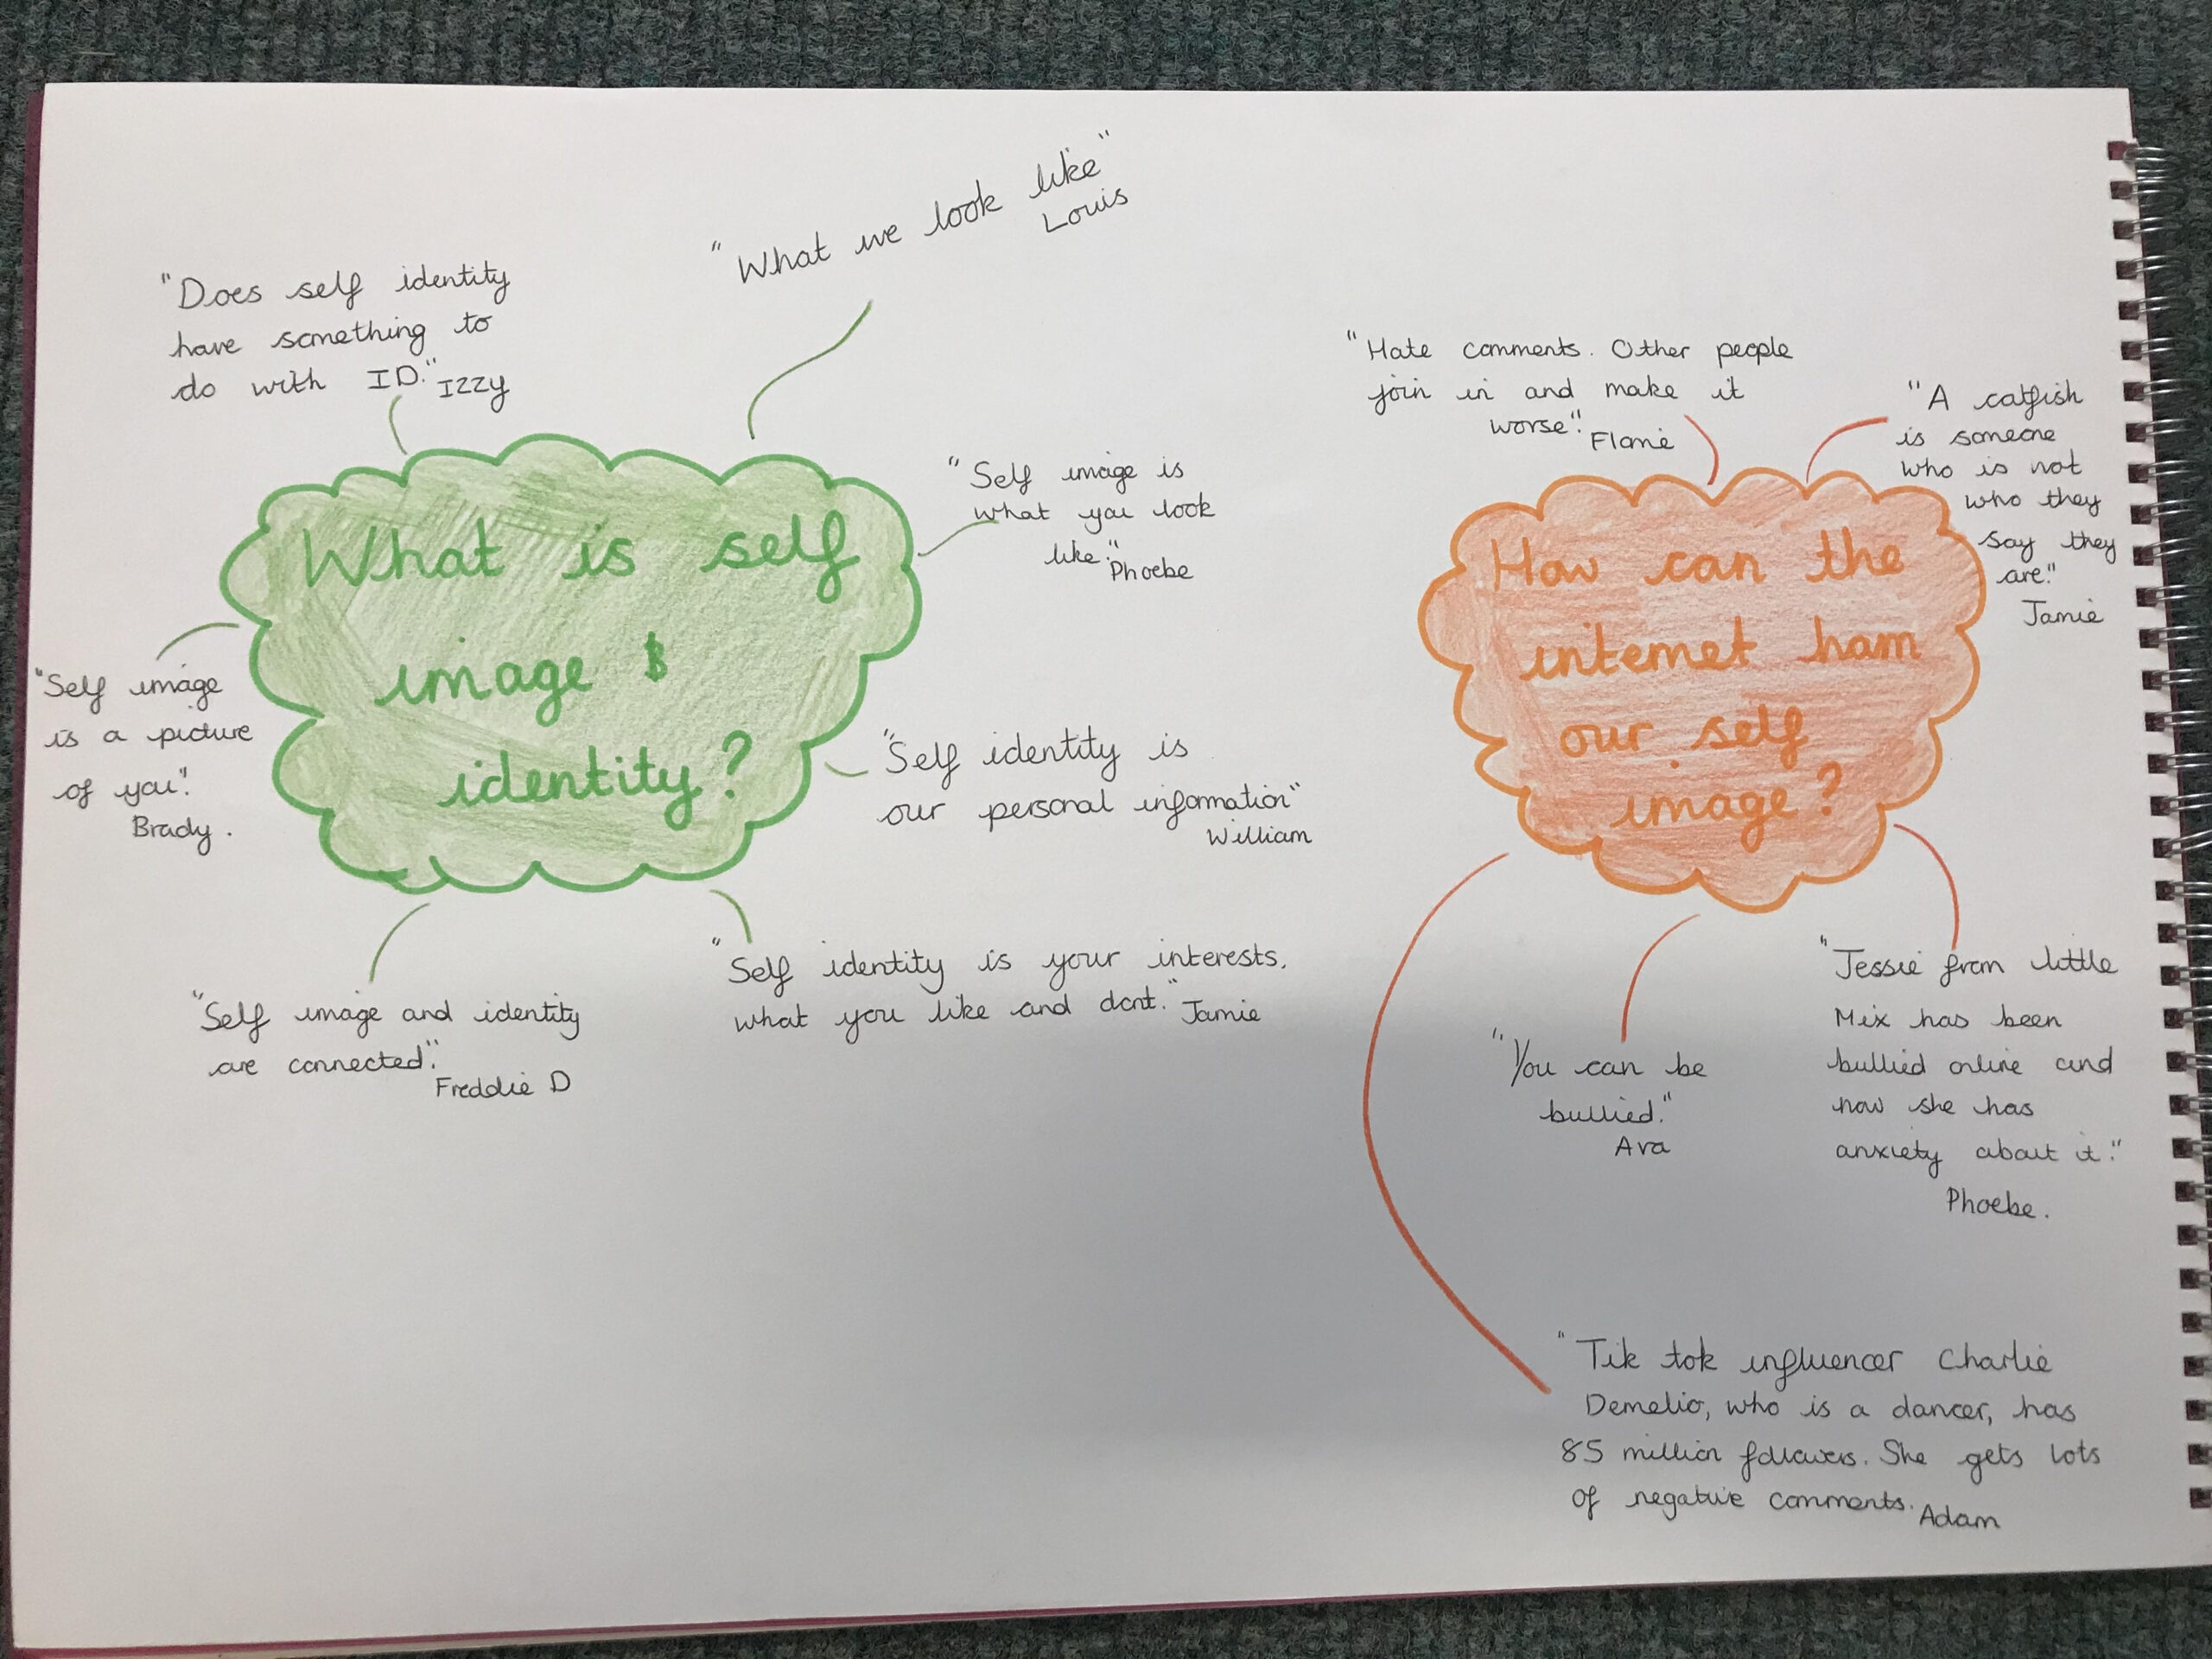 "What we look like"
Louis
"Does self identity
have something to
do with ID." Izzy
"Self image is
what you look
like." Phoebe
What is self
image &
identity?
"Self image
is a picture
of you".
Brady.
"Self identity is
our personal information"
William
"Self identity is your interests,
what you like and dont." Jamie
"Self image and identity
are connected".
Freddie D
"Hate comments. Other people
join in and make it
worse".
"A catfish
is someone
who is not
who they
say they
are."
Jamie
How can the
internet ham
our self
image?
"Jessie from little
Mix has been
bullied online and
now she has
anxiety about it."
Phoebe.
"You can be
bullied."
Ava
"Tik tok influencer Charlie
Demelio, who is a dancer, has
85 million followers. She gets lots
of negative comments. Adam